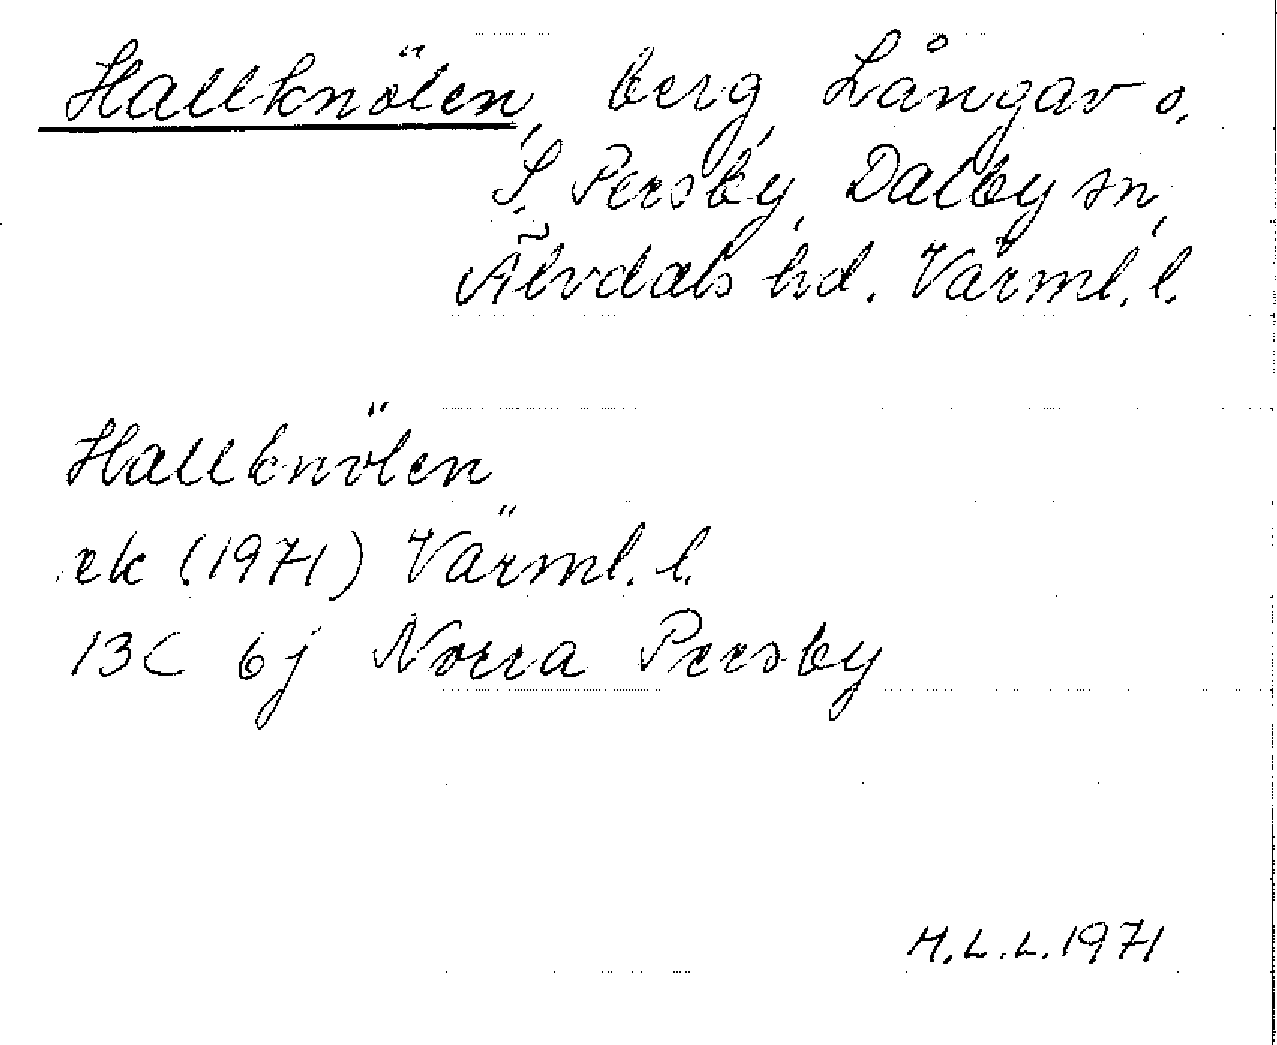 Hallknölen, berg, Långav o.
S. Persby, Dalby sn,
Älvdals hd. Värml. l.
Hallknölen
ek (1971) Värml. l.
13C 6j Norra Persby
H.L.L. 1971